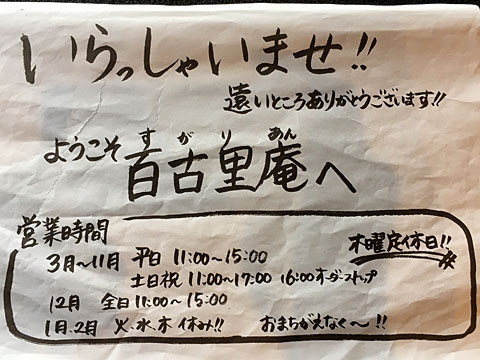 いらっしゃいませ!!
遠いところありがとうございます!!
すがりあん
ようこそ百古里庵へ
営業時間
木曜定休日!!
3月〜11月 平日 11:00〜15:00
土日祝 11:00〜17:00 16:00オーダーストップ
12月 全日 11:00〜15:00
1月.2月 火、水、木 休み!! おまちがえなく〜!!